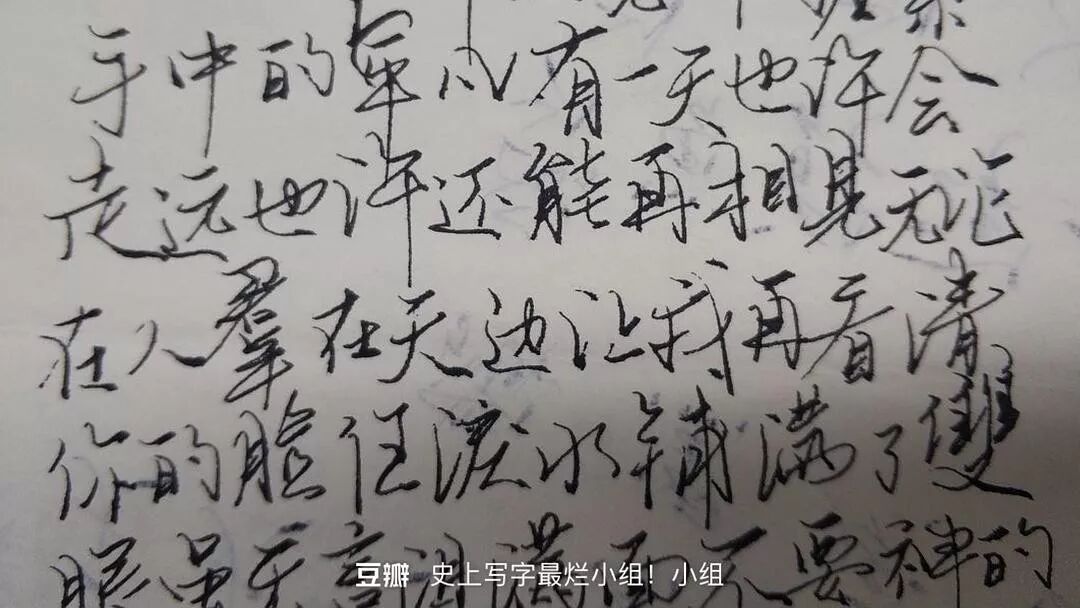 手中的平凡有一天也许会
走远也许还能再相见无论
在人羣在天边让我再看清
你的脸任淚水铺满了雙
眼虽无言泪满面不要神的
豆瓣 史上写字最烂小组！小组